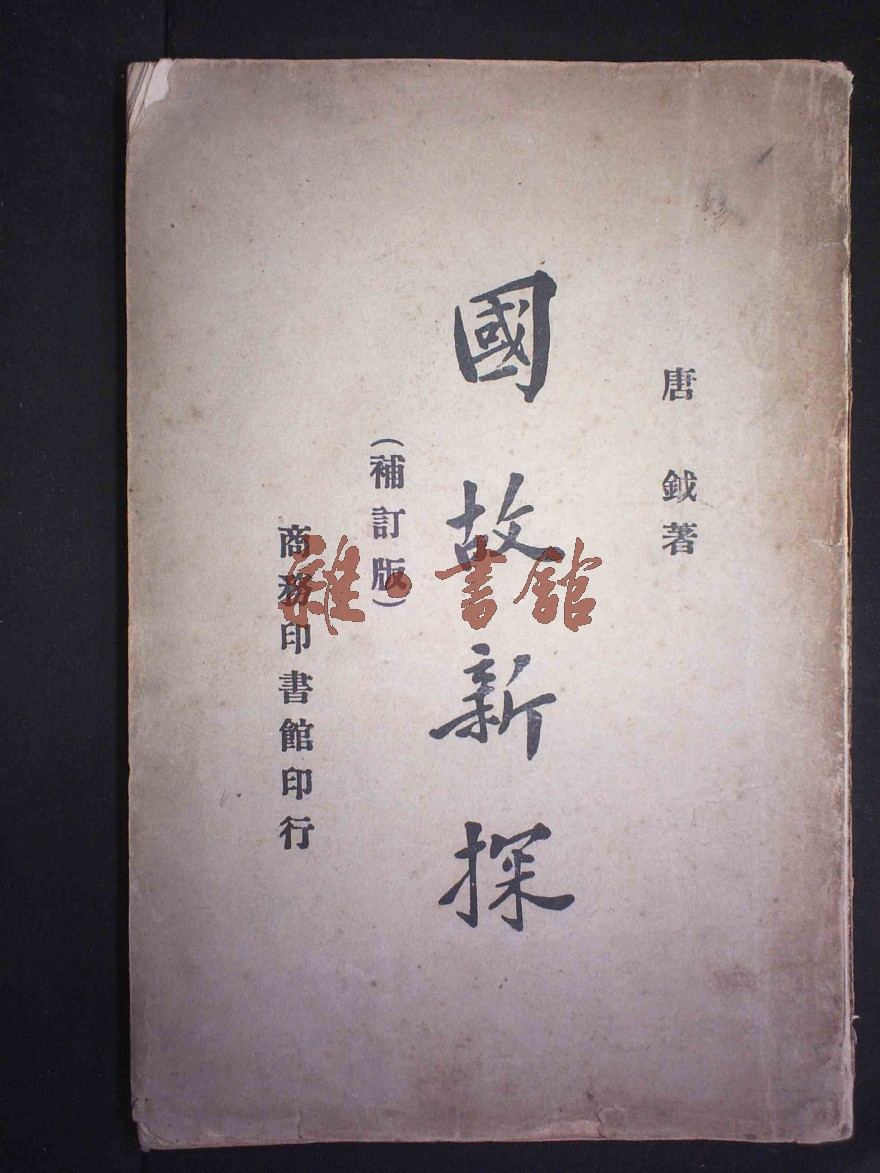 唐鉞著
國故新探
(補訂版)
商務印書館印行
雜·書館